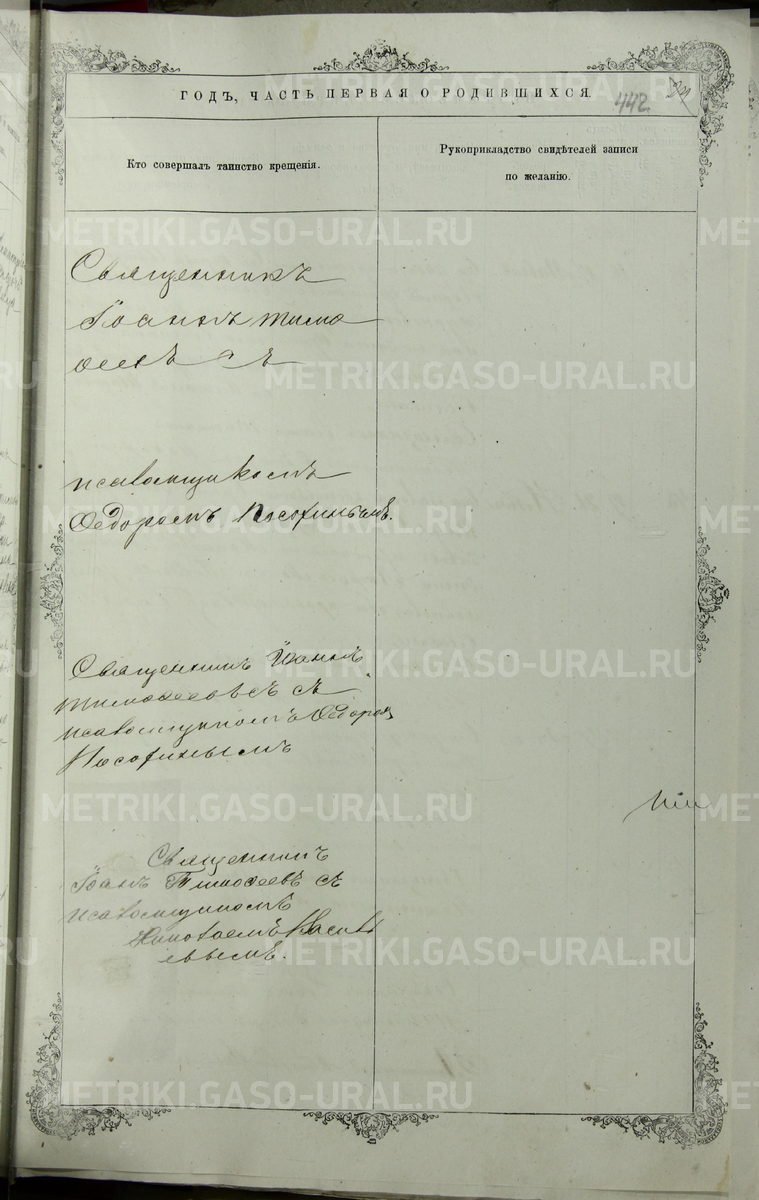 ГОДЪ, ЧАСТЬ ПЕРВАЯ О РОДИВШИХСЯ.
442
Кто совершалъ таинство крещенія.
Рукоприкладство свидѣтелей записи
по желанію.
Священникъ
Іоаннъ Тимо
ѳеевъ съ
псаломщикомъ
Ѳедоромъ Посохинымъ.
Священникъ Іоаннъ
Тимоѳеевъ съ
псаломщикомъ Ѳедоромъ
Посохинымъ
Священникъ
Іоанъ Тимоѳеевъ съ
псаломщикомъ
Николаемъ Василь
евымъ.
METRIKI.GASO-URAL.RU